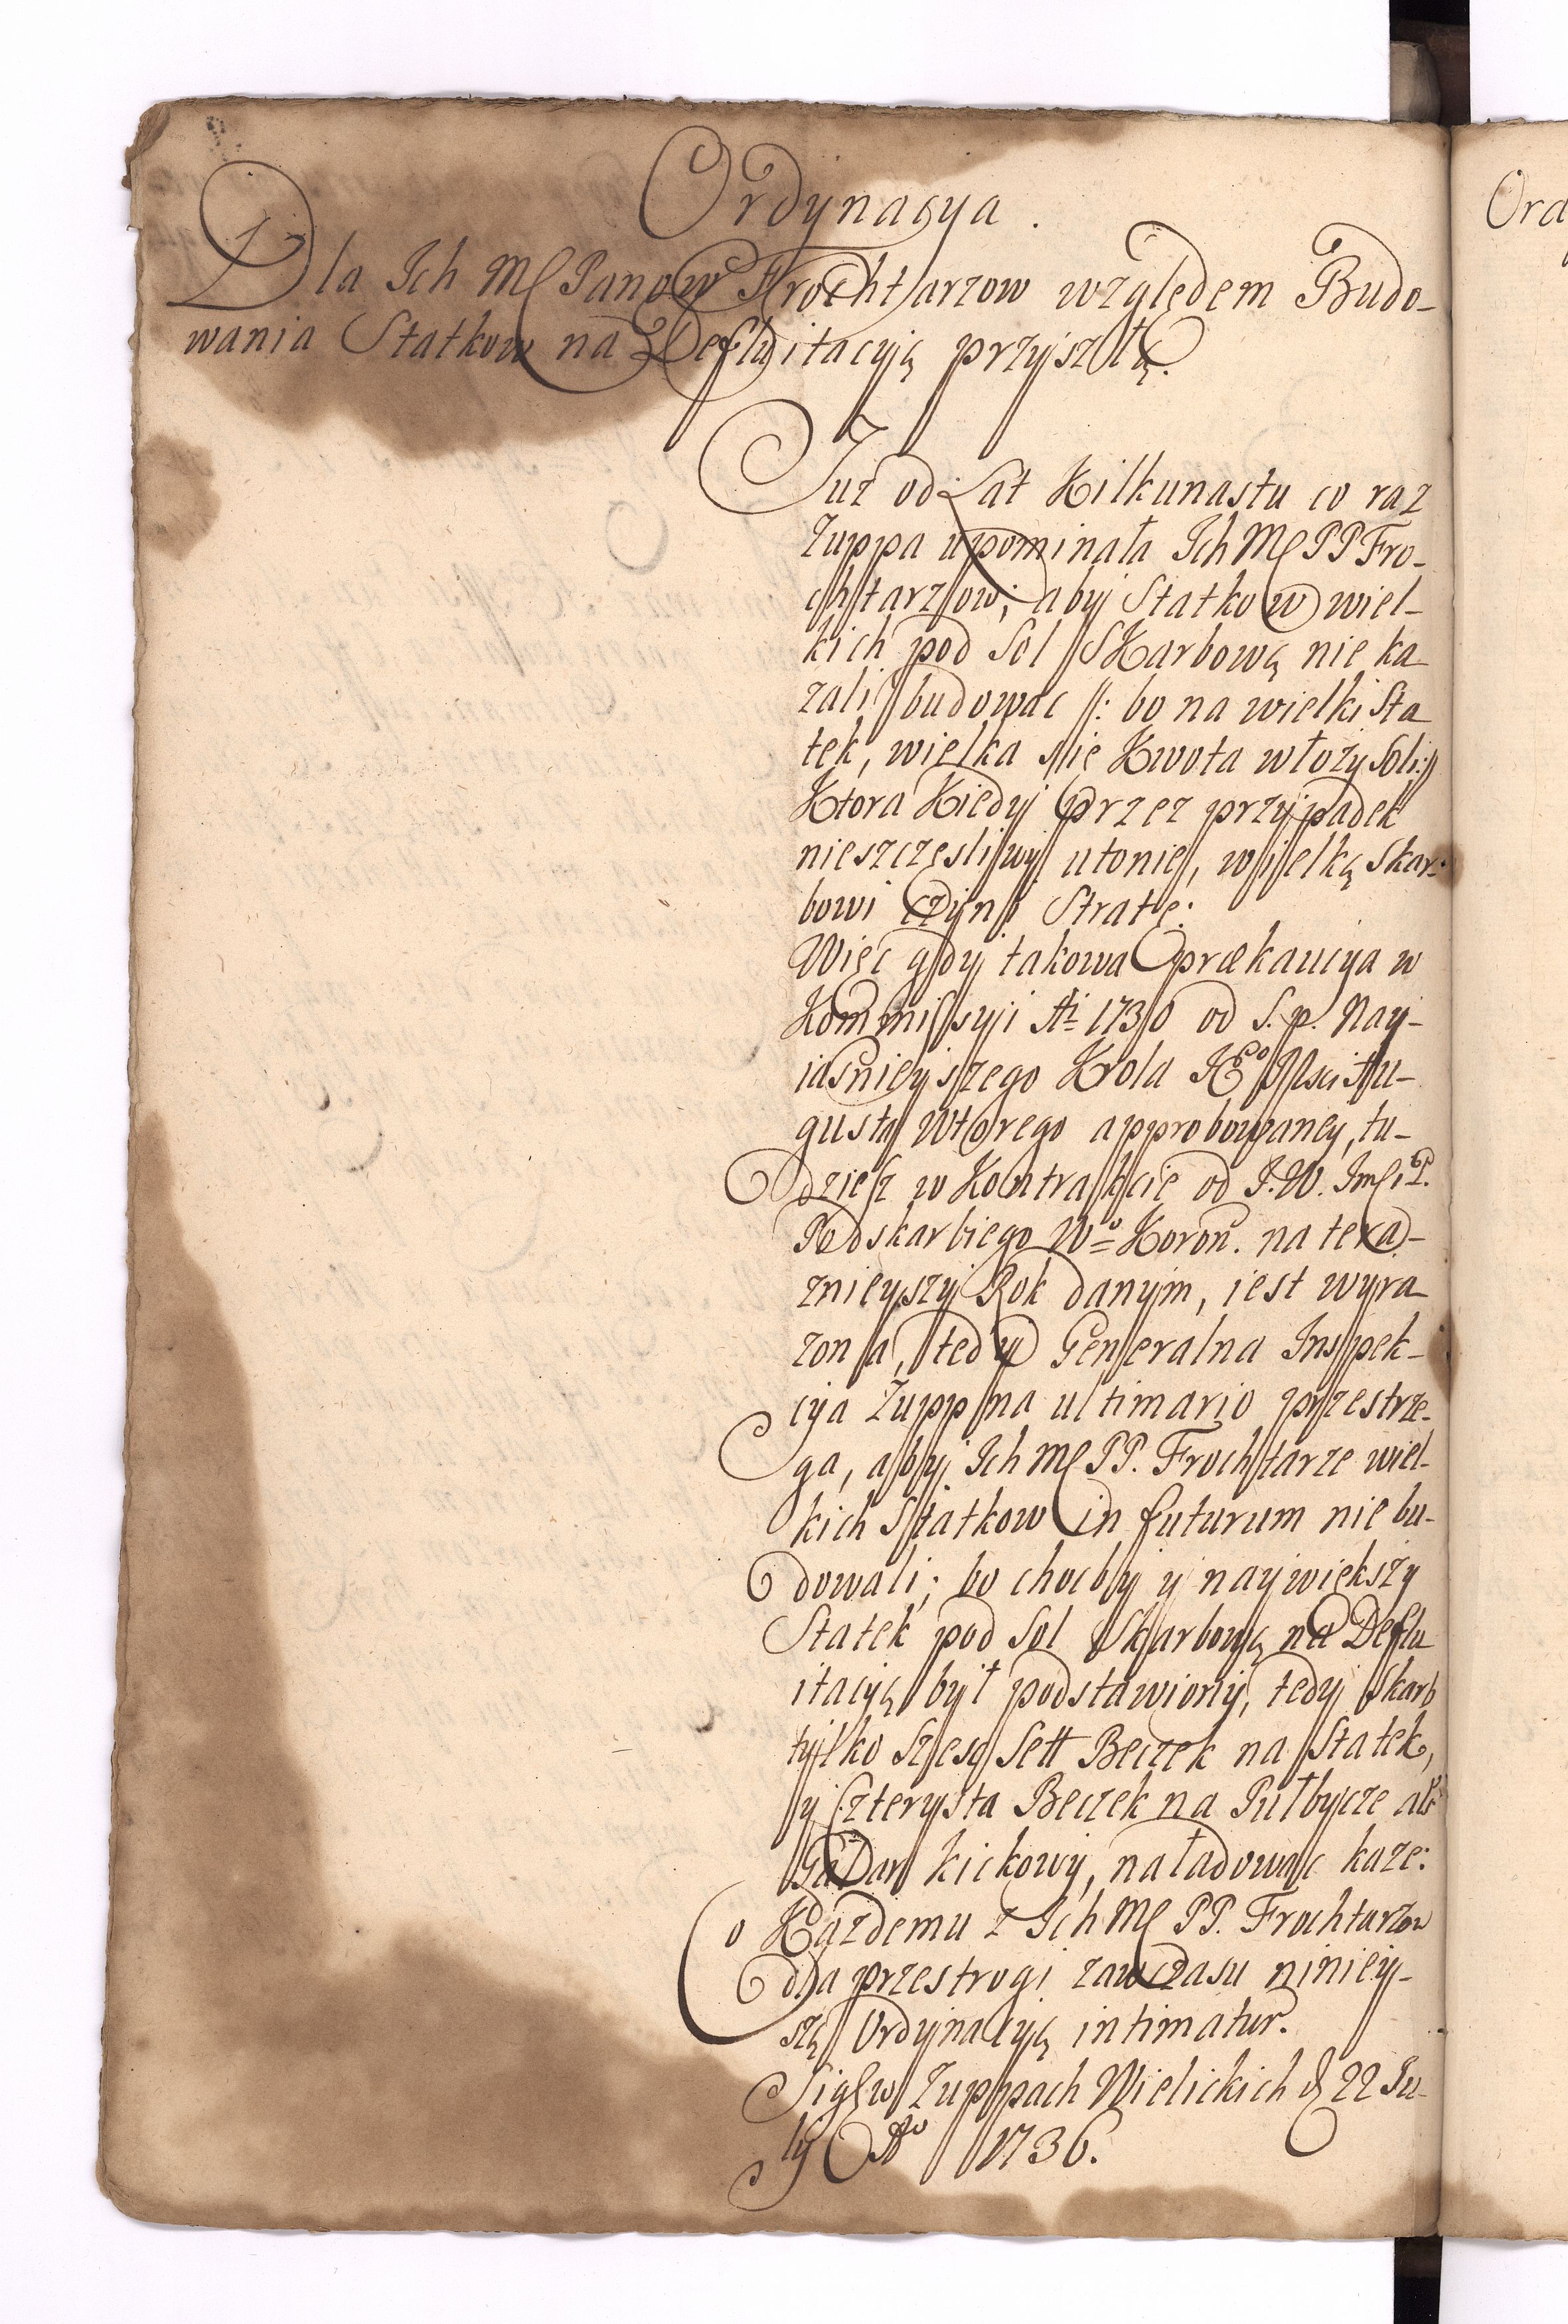 Ordynacya.
Dla Ich Mſ Panow Frochtarzow względem Budo-
wania Statkow na Defluitacyią przyszłą.
Juz od Lat Kilkunastu co raz
Zuppa upominała Ich Mſ PP Fro-
chtarzow; aby Statkow wiel-
kich pod Sol Skarbową nie ka
zali budowac /: bo na wielki Sta
tek, wielka się Kwota włoży Soli :/
Ktora Kiedy przez przypadek
nieszczęsliwy utonie, wielką Skar-
bowi czyni Stratę.
Więc gdy takowa prækaucya w
Kommiſsyi Ai 1730 od S. p. Nay-
iasnieyszego Krola JEo Msci Au-
gusta Wtorego approbowaney, tu-
dzieſz w Kontrakcie od J. W. Imſci P.
Podskarbiego Wo Koron. na tera-
znieyszy Rok danym, iest wyra
zona, tedy Generalna Inspek-
cya Zupp na ultimario przestrze-
ga, aby Ich Mſ PP. Frochtarze wiel-
kich Statkow in futurum nie bu-
dowali; bo chocby y naywiększy
Statek pod Sol Skarbową na Deflu
itacyą był podstawiony, tedy Skarb
tylko Szesc Sett Beczek na Statek,
y Czterysta Beczek na Pułbycze alb
Galar kickowy, naładowac kaze:
o Kazdemu z Ich Mſ PP. Frochtarzow
dla przestrogi zawczasu niniey-
szą Ordynacyią intimatur.
Sig: w Zuppach Wielickich d 22 Ju-
ly Ao 1736.
Ord